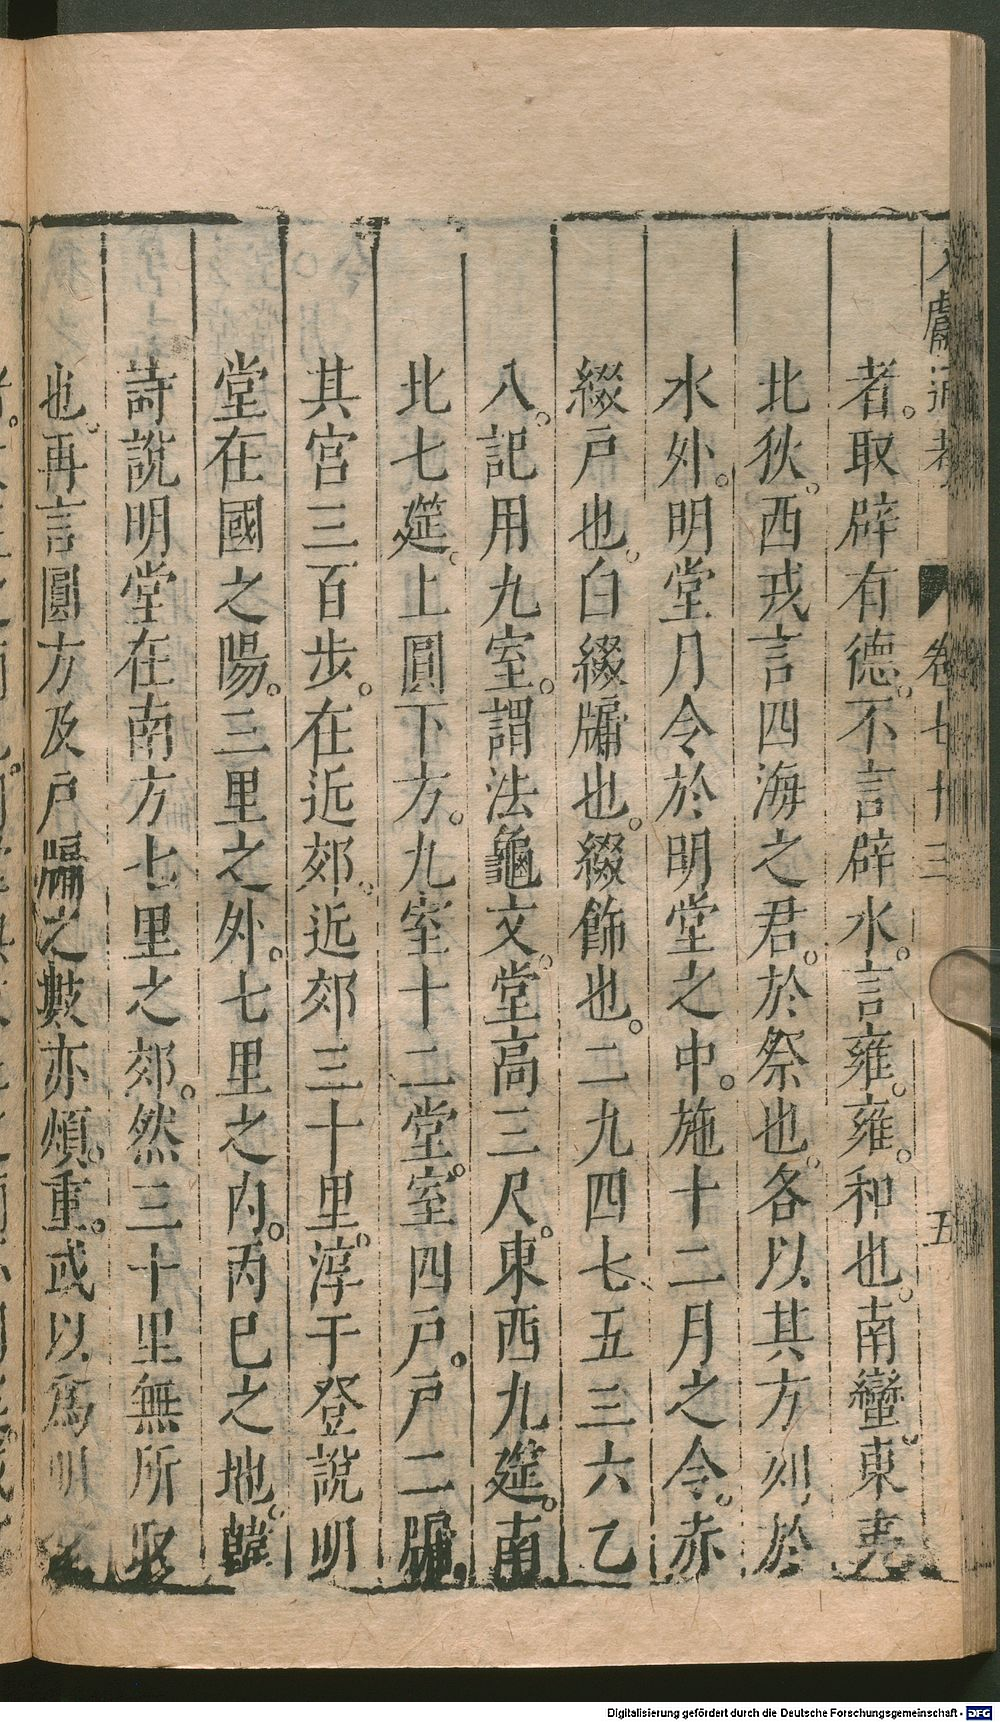 文獻通考 卷七十三 五
者。取辟有德。不言辟水。言雍。雍。和也。南蠻。東夷
北狄。西戎言四海之君。於祭也。各以其方列於
水外。明堂月令於明堂之中。施十二月之令。赤
綴戸也。白綴牖也。綴飾也。二九四七五三六乙
八。記用九室。謂法龜文。堂高三尺。東西九筵。南
北七筵。上圓下方。九室十二堂。室四戸。戸二牖。
其宮三百步。在近郊。近郊三十里。淳于登說明
堂在國之陽。三里之外。七里之内。丙巳之地。韓
詩說明堂在南方七里之郊。然三十里無所取
也。再言圓方及戸牖之數亦煩。重。或以爲明
Digitalisierung gefördert durch die Deutsche Forschungsgemeinschaft - DFG